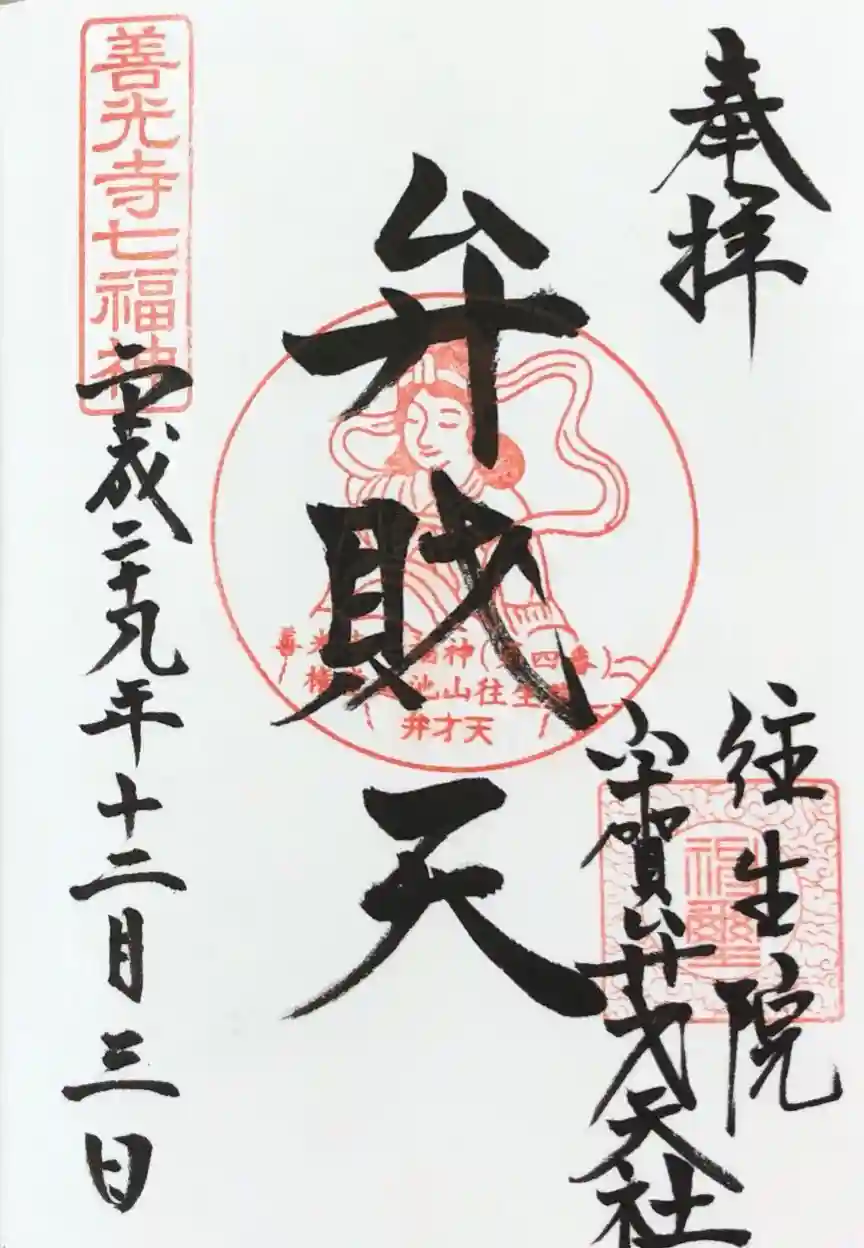 奉拝
弁財天
往生院
宇賀弁才天社
善光寺七福神
平成二十九年十二月三日
善光 福神(第四番)
池山往生
弁才天